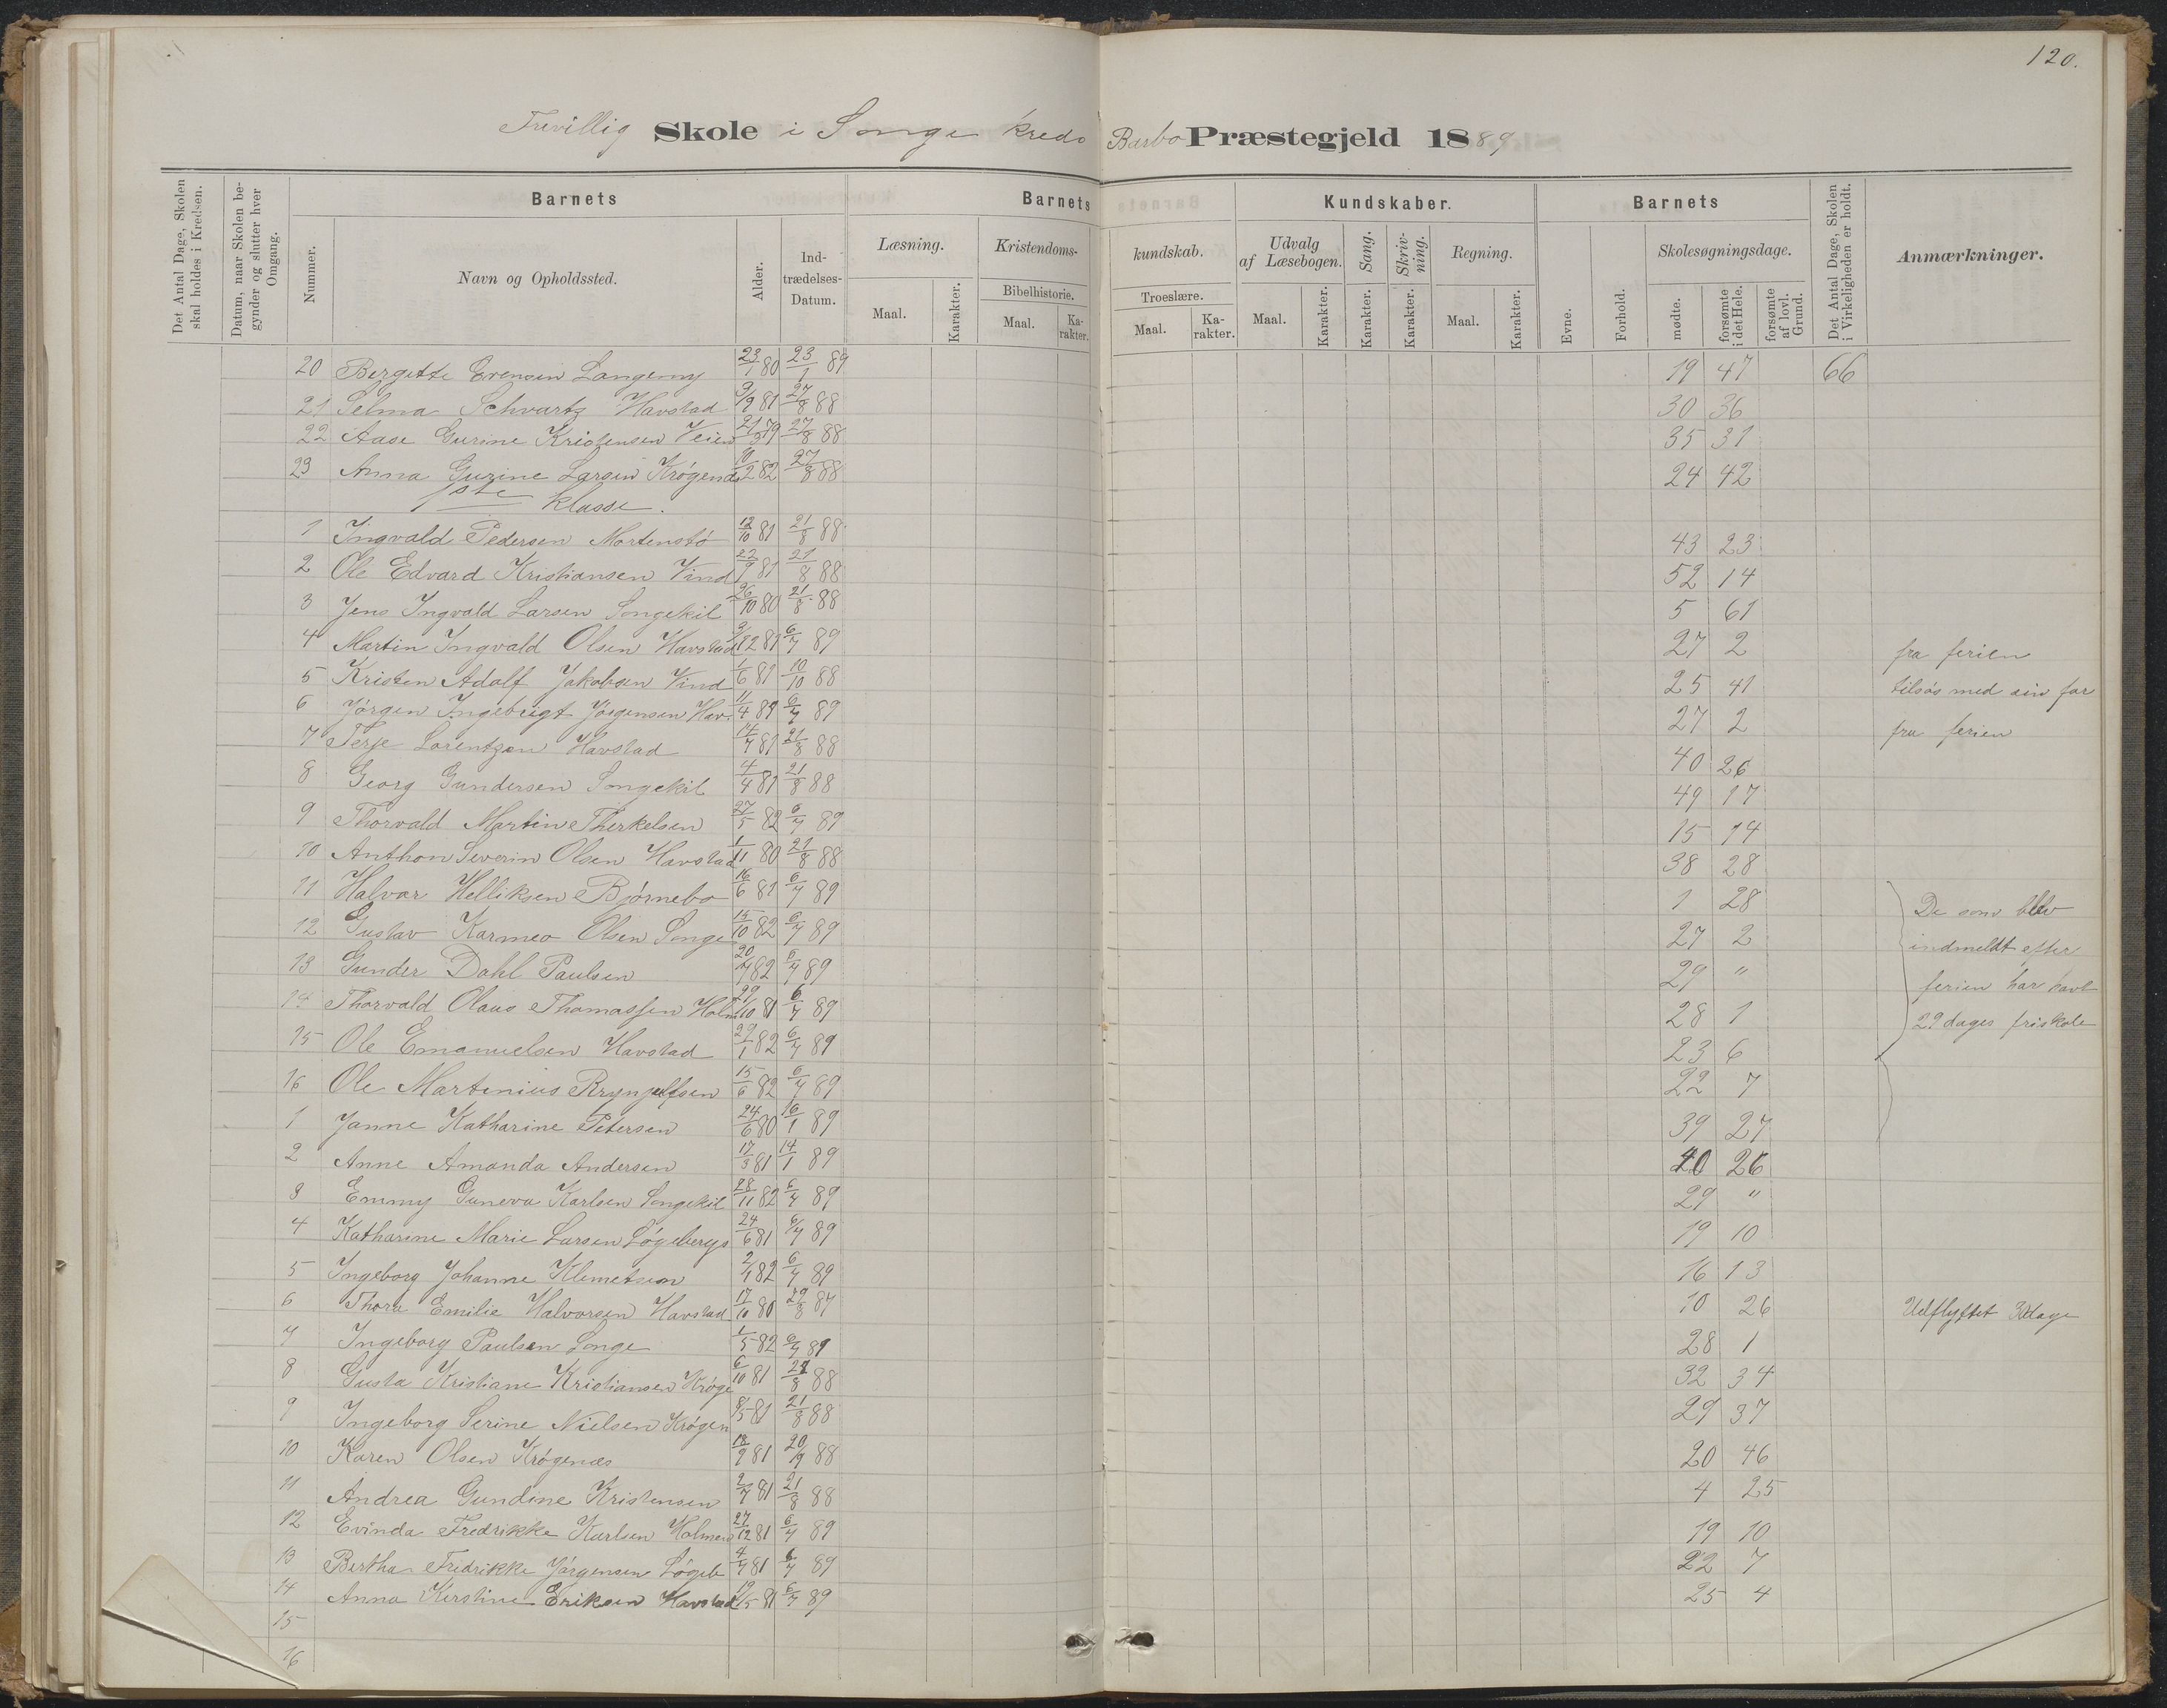 120.
Frivillig Skole i Songe kreds Barbo Præstegjeld 1889
Det Antal Dage, Skolen skal holdes i Kredsen.
Datum, naar Skolen begynder og slutter hver Omgang.
Nummer.
Barnets
Navn og Opholdssted.
Alder.
Indtrædelses-Datum.
Barnets Kundskaber.
Læsning.
Maal. Karakter.
Kristendomskundskab.
Bibelhistorie.
Maal. Karakter.
Troeslære.
Maal. Karakter.
Udvalg af Læsebogen.
Maal. Karakter.
Sang.
Karakter.
Skrivning.
Karakter.
Regning.
Maal. Karakter.
Barnets
Evne. Forhold.
Skolesøgningsdage.
mødte. forsømte i det Hele. forsømte af lovl. Grund.
Det Antal Dage, Skolen i Virkeligheden er holdt.
Anmærkninger.
20 Bergitte Evensen Langemy 23/1 80 23/1 89 19 47 66
21 Selma Schvartz Havstad 9/9 81 27/8 88 30 36
22 Aase Gurine Kristensen Veien 79 27/8 88 35 31
23 Anna Gurine Larsen Krøgenæs 10/2 82 27/8 88 24 42
1ste klasse.
1 Ingvald Pedersen Mortensbö 12/10 81 21/8 88 43 23
2 Ole Edvard Kristiansen Vind 81 21/8 88 52 14
3 Jens Ingvald Larsen Songekil 26/10 80 21/8 88 5 61
4 Martin Ingvald Olsen Havstad 3/12 81 6/7 89 27 2 fra ferien
5 Kristen Adolf Jakobsen Vind 1/6 81 10/10 88 25 41 tilsös med sin far
6 Jörgen Ingebrigt Jörgensen Hav. 11/4 6/7 89 27 2 fra ferien
7 Terje Lorentzen Havstad 14/7 81 21/8 88 40 26
8 Georg Gundersen Songekil 4/4 81 21/8 88 49 17
9 Thorvald Martin Therkelsen 27/5 82 6/7 89 15 14
10 Anthon Severin Olsen Havstad 1/11 80 21/8 88 38 28
11 Halvar Helliksen Björnebo 16/6 81 6/7 89 1 28 De som blev
12 Gustav Karmeo Olsen Songe 15/10 82 6/7 89 27 2 indmeldt efter
13 Gunder Dahl Paulsen 82 6/7 89 29 " ferien har havt
14 Thorvald Olaus Thomassen Holm 29/10 81 6/7 89 28 1 29 dages friskole
15 Ole Emanuelsen Havstad 29/1 82 6/7 89 23 6
16 Ole Martinius Brynjulfsen 15/6 82 6/7 89 22 7
1 Janne Katharine Petersen 24/6 80 16/1 89 39 27
2 Anne Amanda Andersen 17/3 81 14/1 89 40 26
3 Emmy Guneva Karlsen Songekil 28/11 82 6/7 89 29 "
4 Katharine Marie Larsen Løgeberg 24/6 81 6/7 89 19 10
5 Ingeborg Johanne Klemetsen 82 6/7 89 16 13
6 Thora Emilie Halvorsen Havstad 17/10 80 29/8 87 10 26 Udflyttet dage
7 Ingeborg Paulsen Songe 1/5 82 6/7 89 28 1
8 Gusta Kristiane Kristiansen Krøge 6/10 81 21/8 88 32 34
9 Ingeborg Serine Nielsen Krøgen 8/5 81 21/8 88 29 37
10 Karen Olsen Krøgenæs 18/9 81 20/9 88 20 46
11 Andrea Gundine Kristensen 2/7 81 21/8 88 4 25
12 Evinda Fredrikke Karlsen Holmen 27/12 81 6/7 89 19 10
13 Bertha Fredrikke Jörgensen Løgeb 81 6/7 89 22 7
14 Anna Kirstine Eriksen Havstad 19/5 81 6/7 89 25 4
15
16